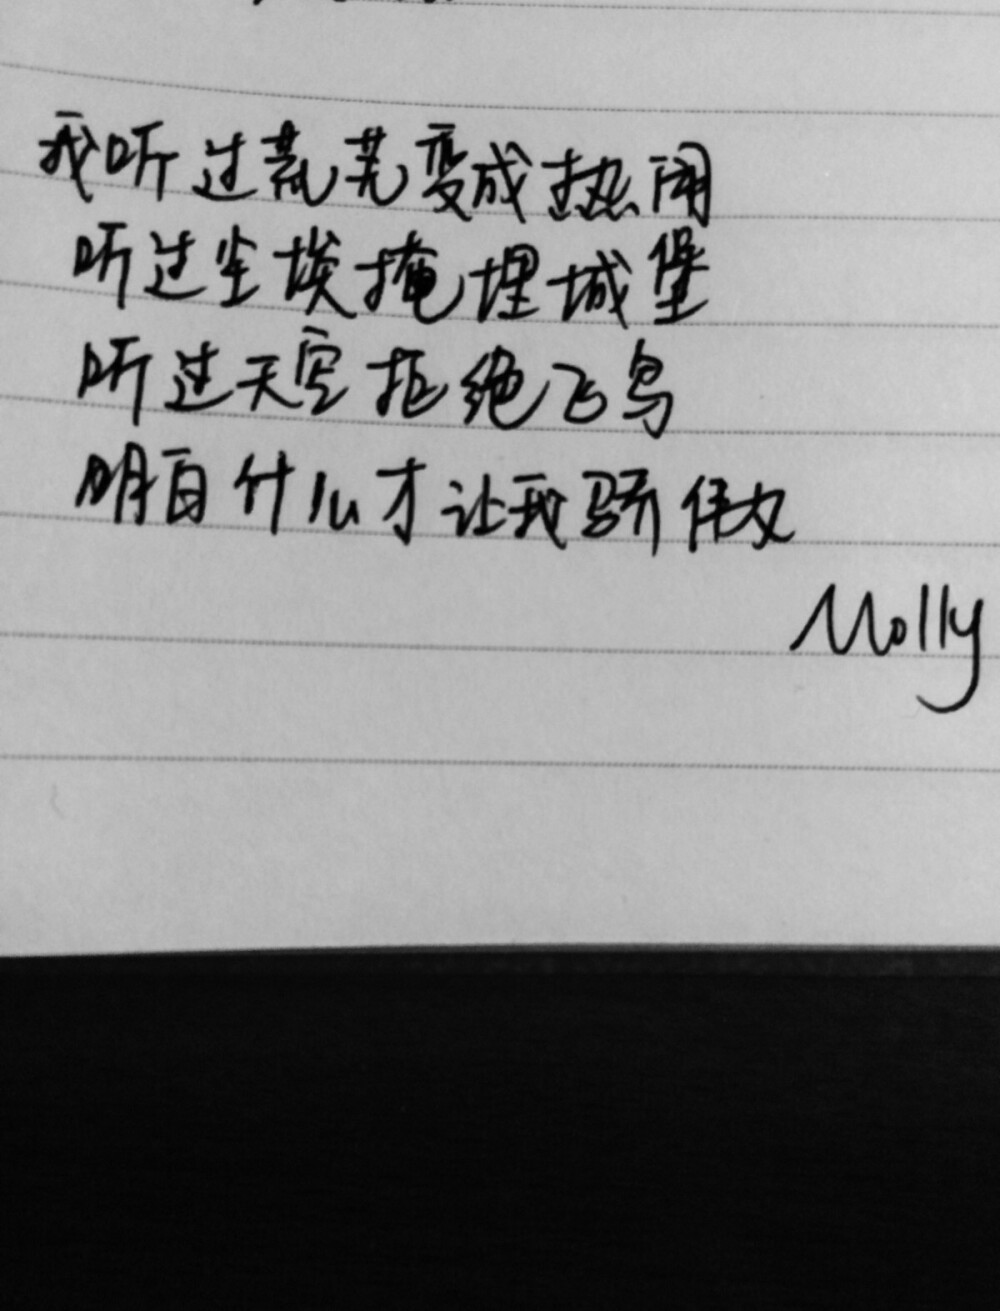 我听过荒芜变成热闹
听过尘埃掩埋城堡
听过天空拒绝飞鸟
明白什么才让我骄傲
Molly